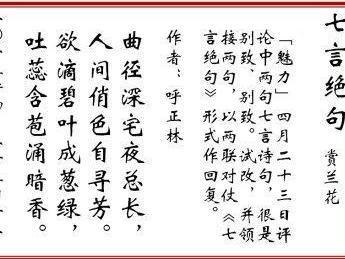 七言绝句 赏兰花
「魅力」四月二十三日评
论中两句七言诗句，很是
别致、别致。试改，并领
接两句，以两联对仗《七
言绝句》形式作回复。
作者：呼正林
曲径深宅夜总长，
人间俏色自寻芳。
欲滴碧叶成葱绿，
吐蕊含苞涌暗香。